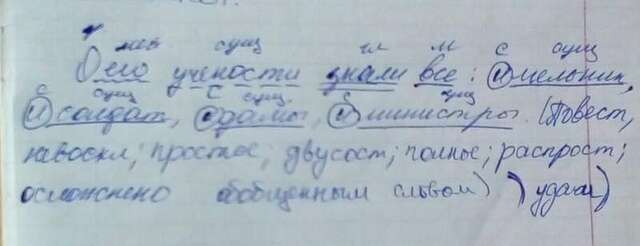 мест сущ гл м с сущ
О его учености знали все: и мельник,
с сущ с сущ. с сущ
и солдат, и дамы, и министры. (Повест,
невоскл; простое; двусост; полное; распрост;
осложнено обобщенным словом) ) удачи)